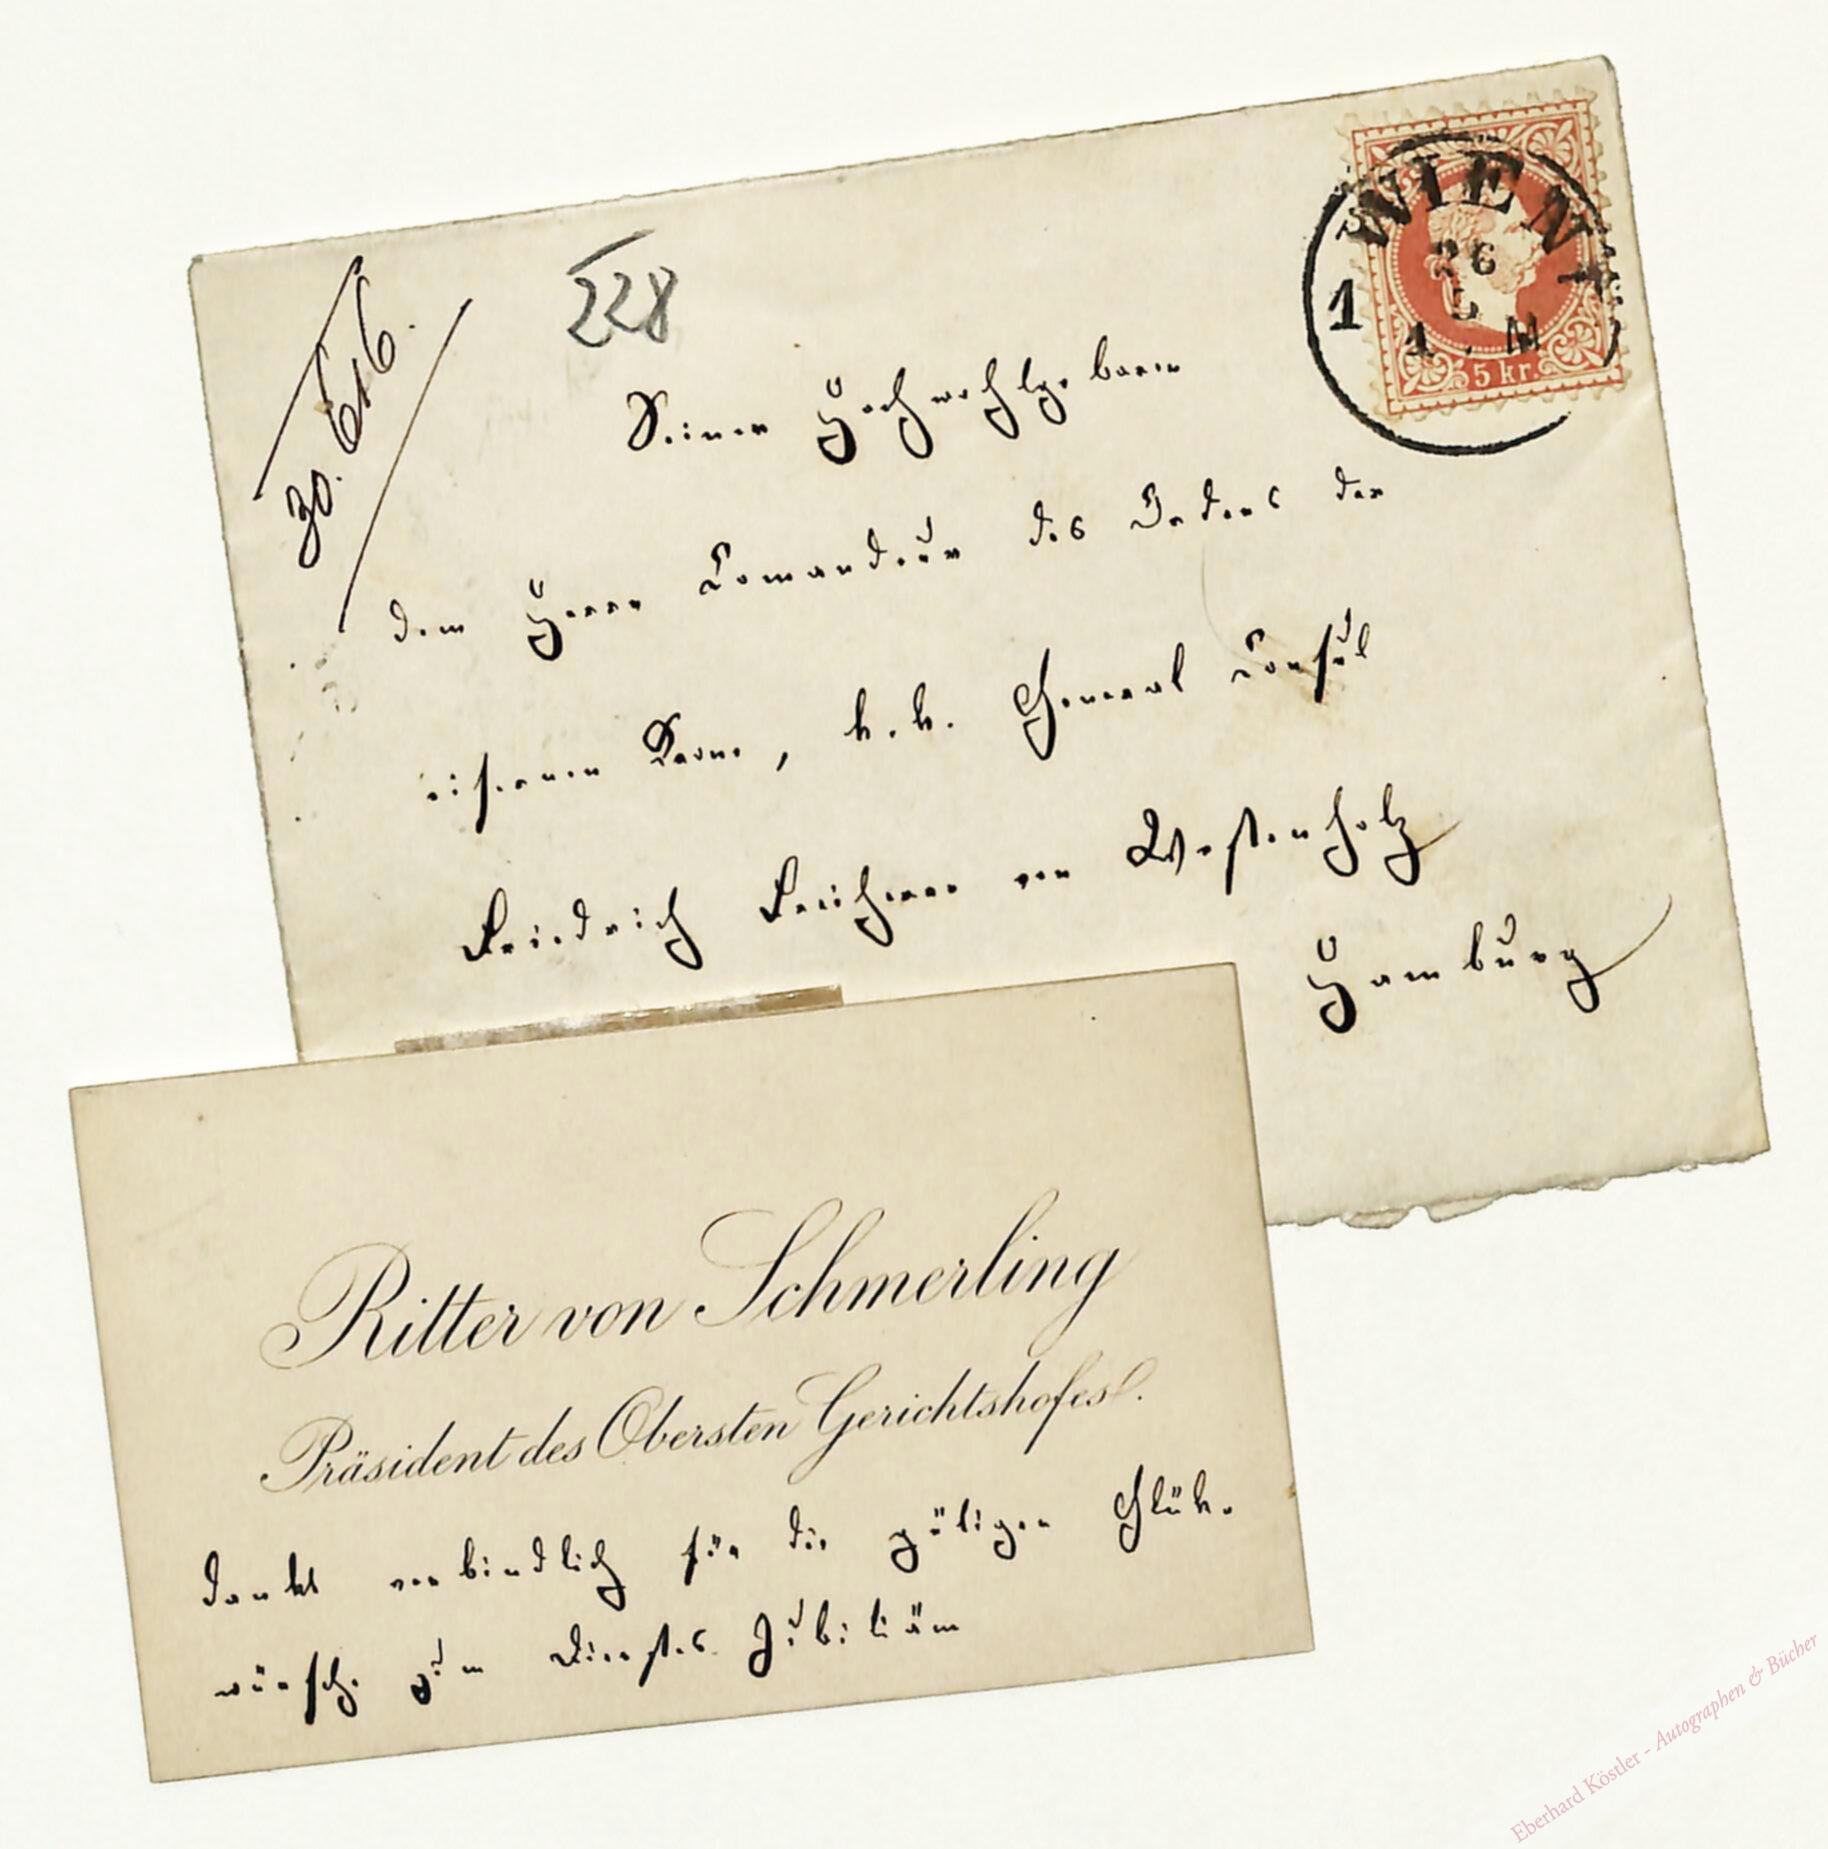 WIEN
1
26
5
1 . M
5 kr.
228
30. 6/6.
Seiner Hochwohlgeboren
dem Herrn Comandeur des Ordens der
eisernen Krone, k. k. General Consul
Friedrich Freiherrn von Westenholz
Hamburg
Ritter von Schmerling
Präsident des Obersten Gerichtshofes.
dankt verbindlich für die gütigen Glük-
wünsche zum Dienstes Jubiläum
Eberhard Köstler - Autographen & Bücher